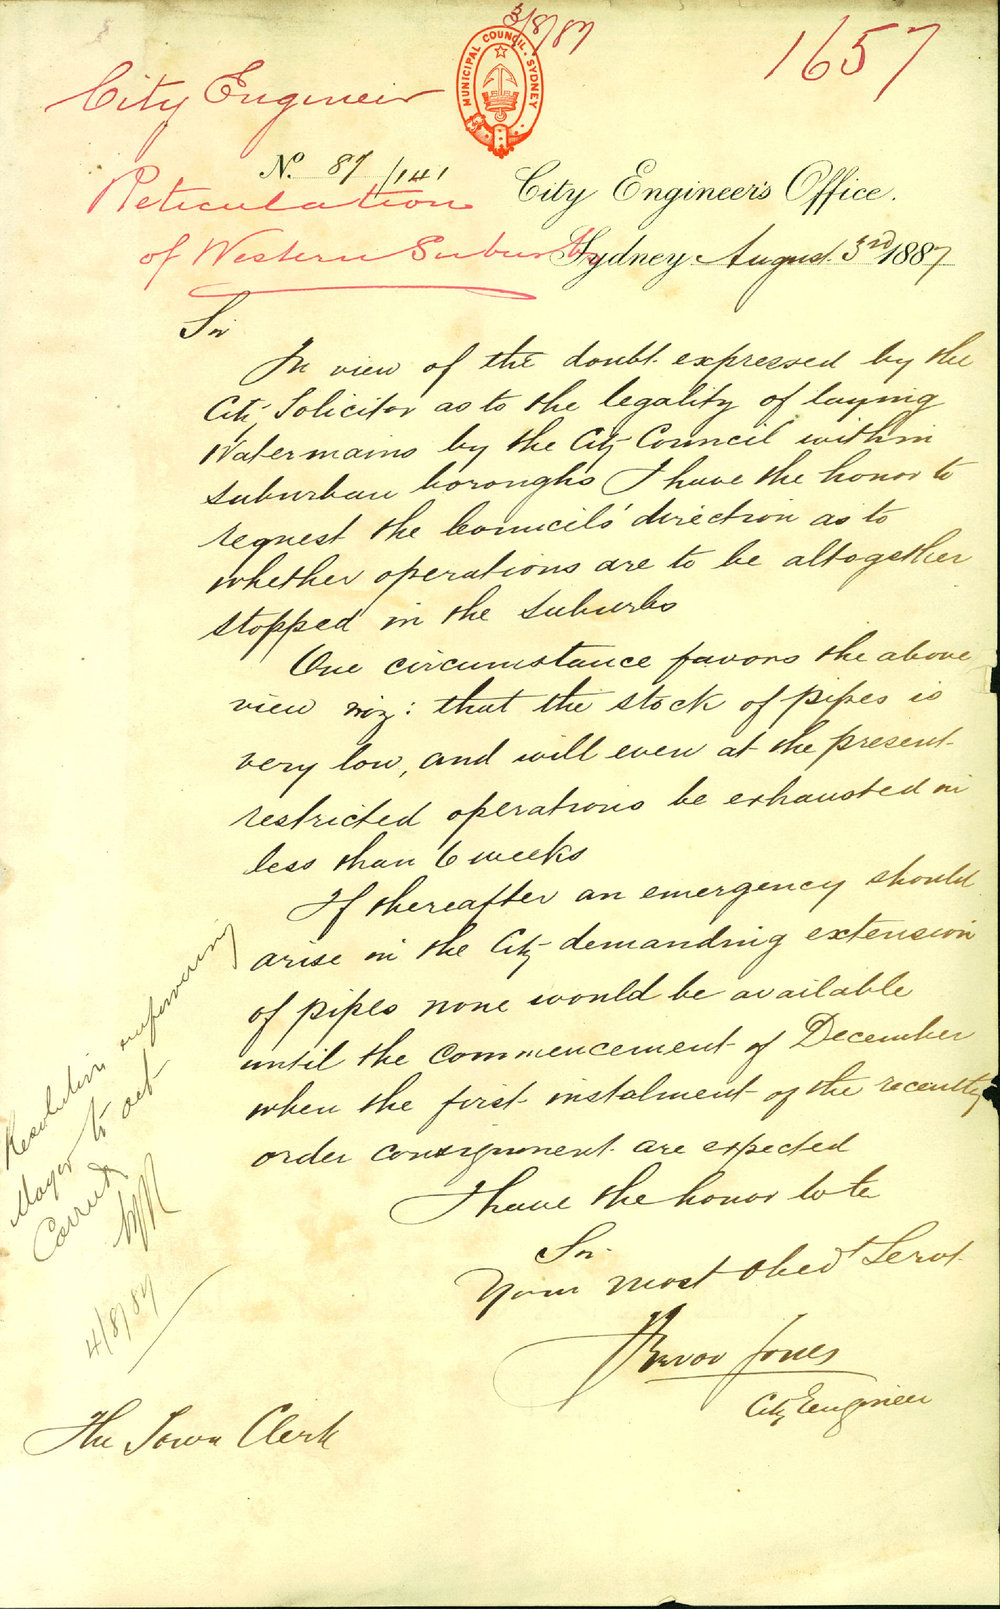 3/8/87
1657
City Engineer
MUNICIPAL COUNCIL · SYDNEY
No. 87/141
City Engineer's Office.
Reticulation
of Western Suburbs
Sydney August 3rd 1887
Sir
In view of the doubt expressed by the
City Solicitor as to the legality of laying
Watermains by the City Council within
suburban boroughs I have the honor to
request the Council's direction as to
whether operations are to be altogether
stopped in the suburbs
One circumstance favors the above
view viz: that the stock of pipes is
very low, and will even at the present
restricted operations be exhausted in
less than 6 weeks
If thereafter an emergency should
arise in the City demanding extension
of pipes none would be available
until the commencement of December
when the first instalment of the recently
order consignment are expected
I have the honor to be
Sir
Your most obedt Servt
Trevor Jones
City Engineer
The Town Clerk
Resolution empowering
Mayor to act
Carried
4/8/87